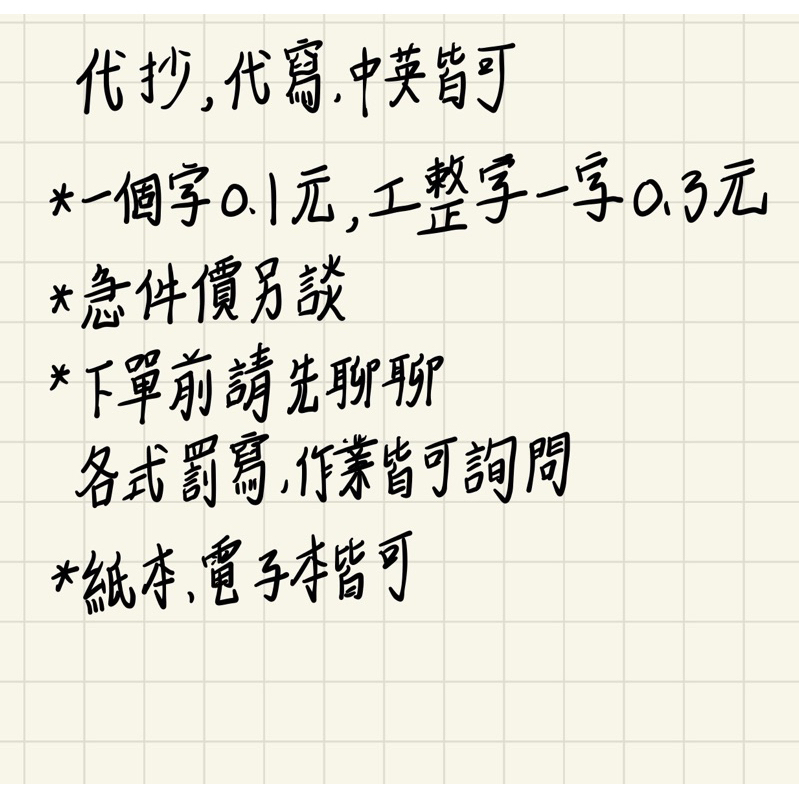 代抄,代寫,中英皆可
*一個字0.1元,工整字一字0.3元
*急件價另談
*下單前請先聊聊
各式罰寫,作業皆可詢問
*紙本、電子本皆可